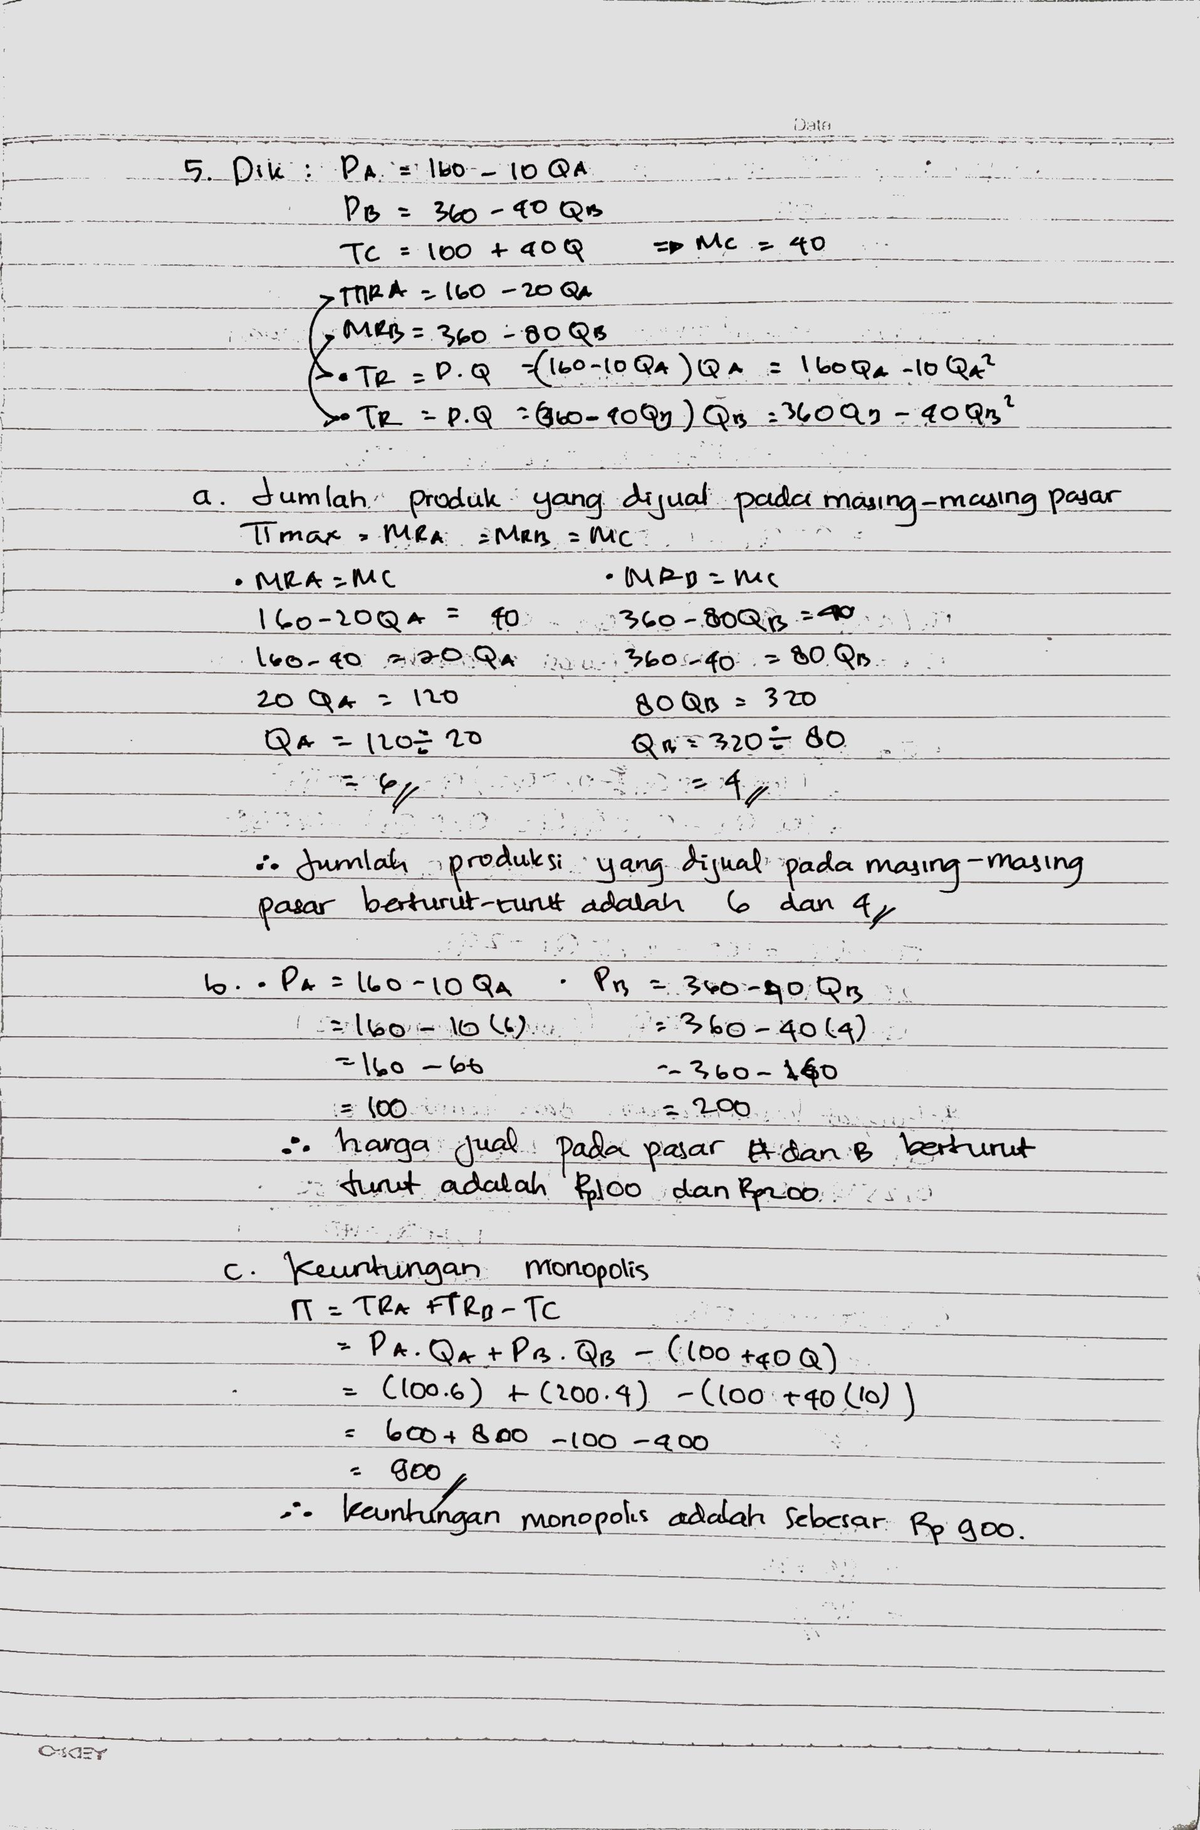 Date
5. Dik : PA = 160 - 10 QA
PB = 360 - 40 QB
TC = 100 + 40Q => MC = 40
MRA = 160 - 20 QA
MRB = 360 - 80 QB
• TR = P.Q = (160-10 QA) QA = 160 QA - 10 QA²
• TR = P.Q = (360-40QB) QB = 360QB - 40 QB²
a. Jumlah produk yang dijual pada masing-masing pasar
π max = MRA = MRB = MC
• MRA = MC • MRB = MC
160-20QA = 40 360-80QB = 40
160-40 = 20 QA 360-40 = 80 QB
20 QA = 120 80 QB = 320
QA = 120 ÷ 20 QB = 320 ÷ 80
= 6// = 4//
∴ Jumlah produksi yang dijual pada masing-masing
pasar berturut-turut adalah 6 dan 4//
b. • PA = 160-10 QA • PB = 360-40 QB
= 160 - 10 (6) = 360 - 40 (4)
= 160 - 60 = 360 - 160
= 100 = 200
∴ harga jual pada pasar A dan B berturut
turut adalah Rp100 dan Rp200
c. Keuntungan monopolis
π = TRA + TRB - TC
= PA.QA + PB.QB - (100 + 40Q)
= (100.6) + (200.4) - (100 + 40 (10))
= 600 + 800 - 100 - 400
= 900//
∴ keuntungan monopolis adalah sebesar Rp 900.
OKEY